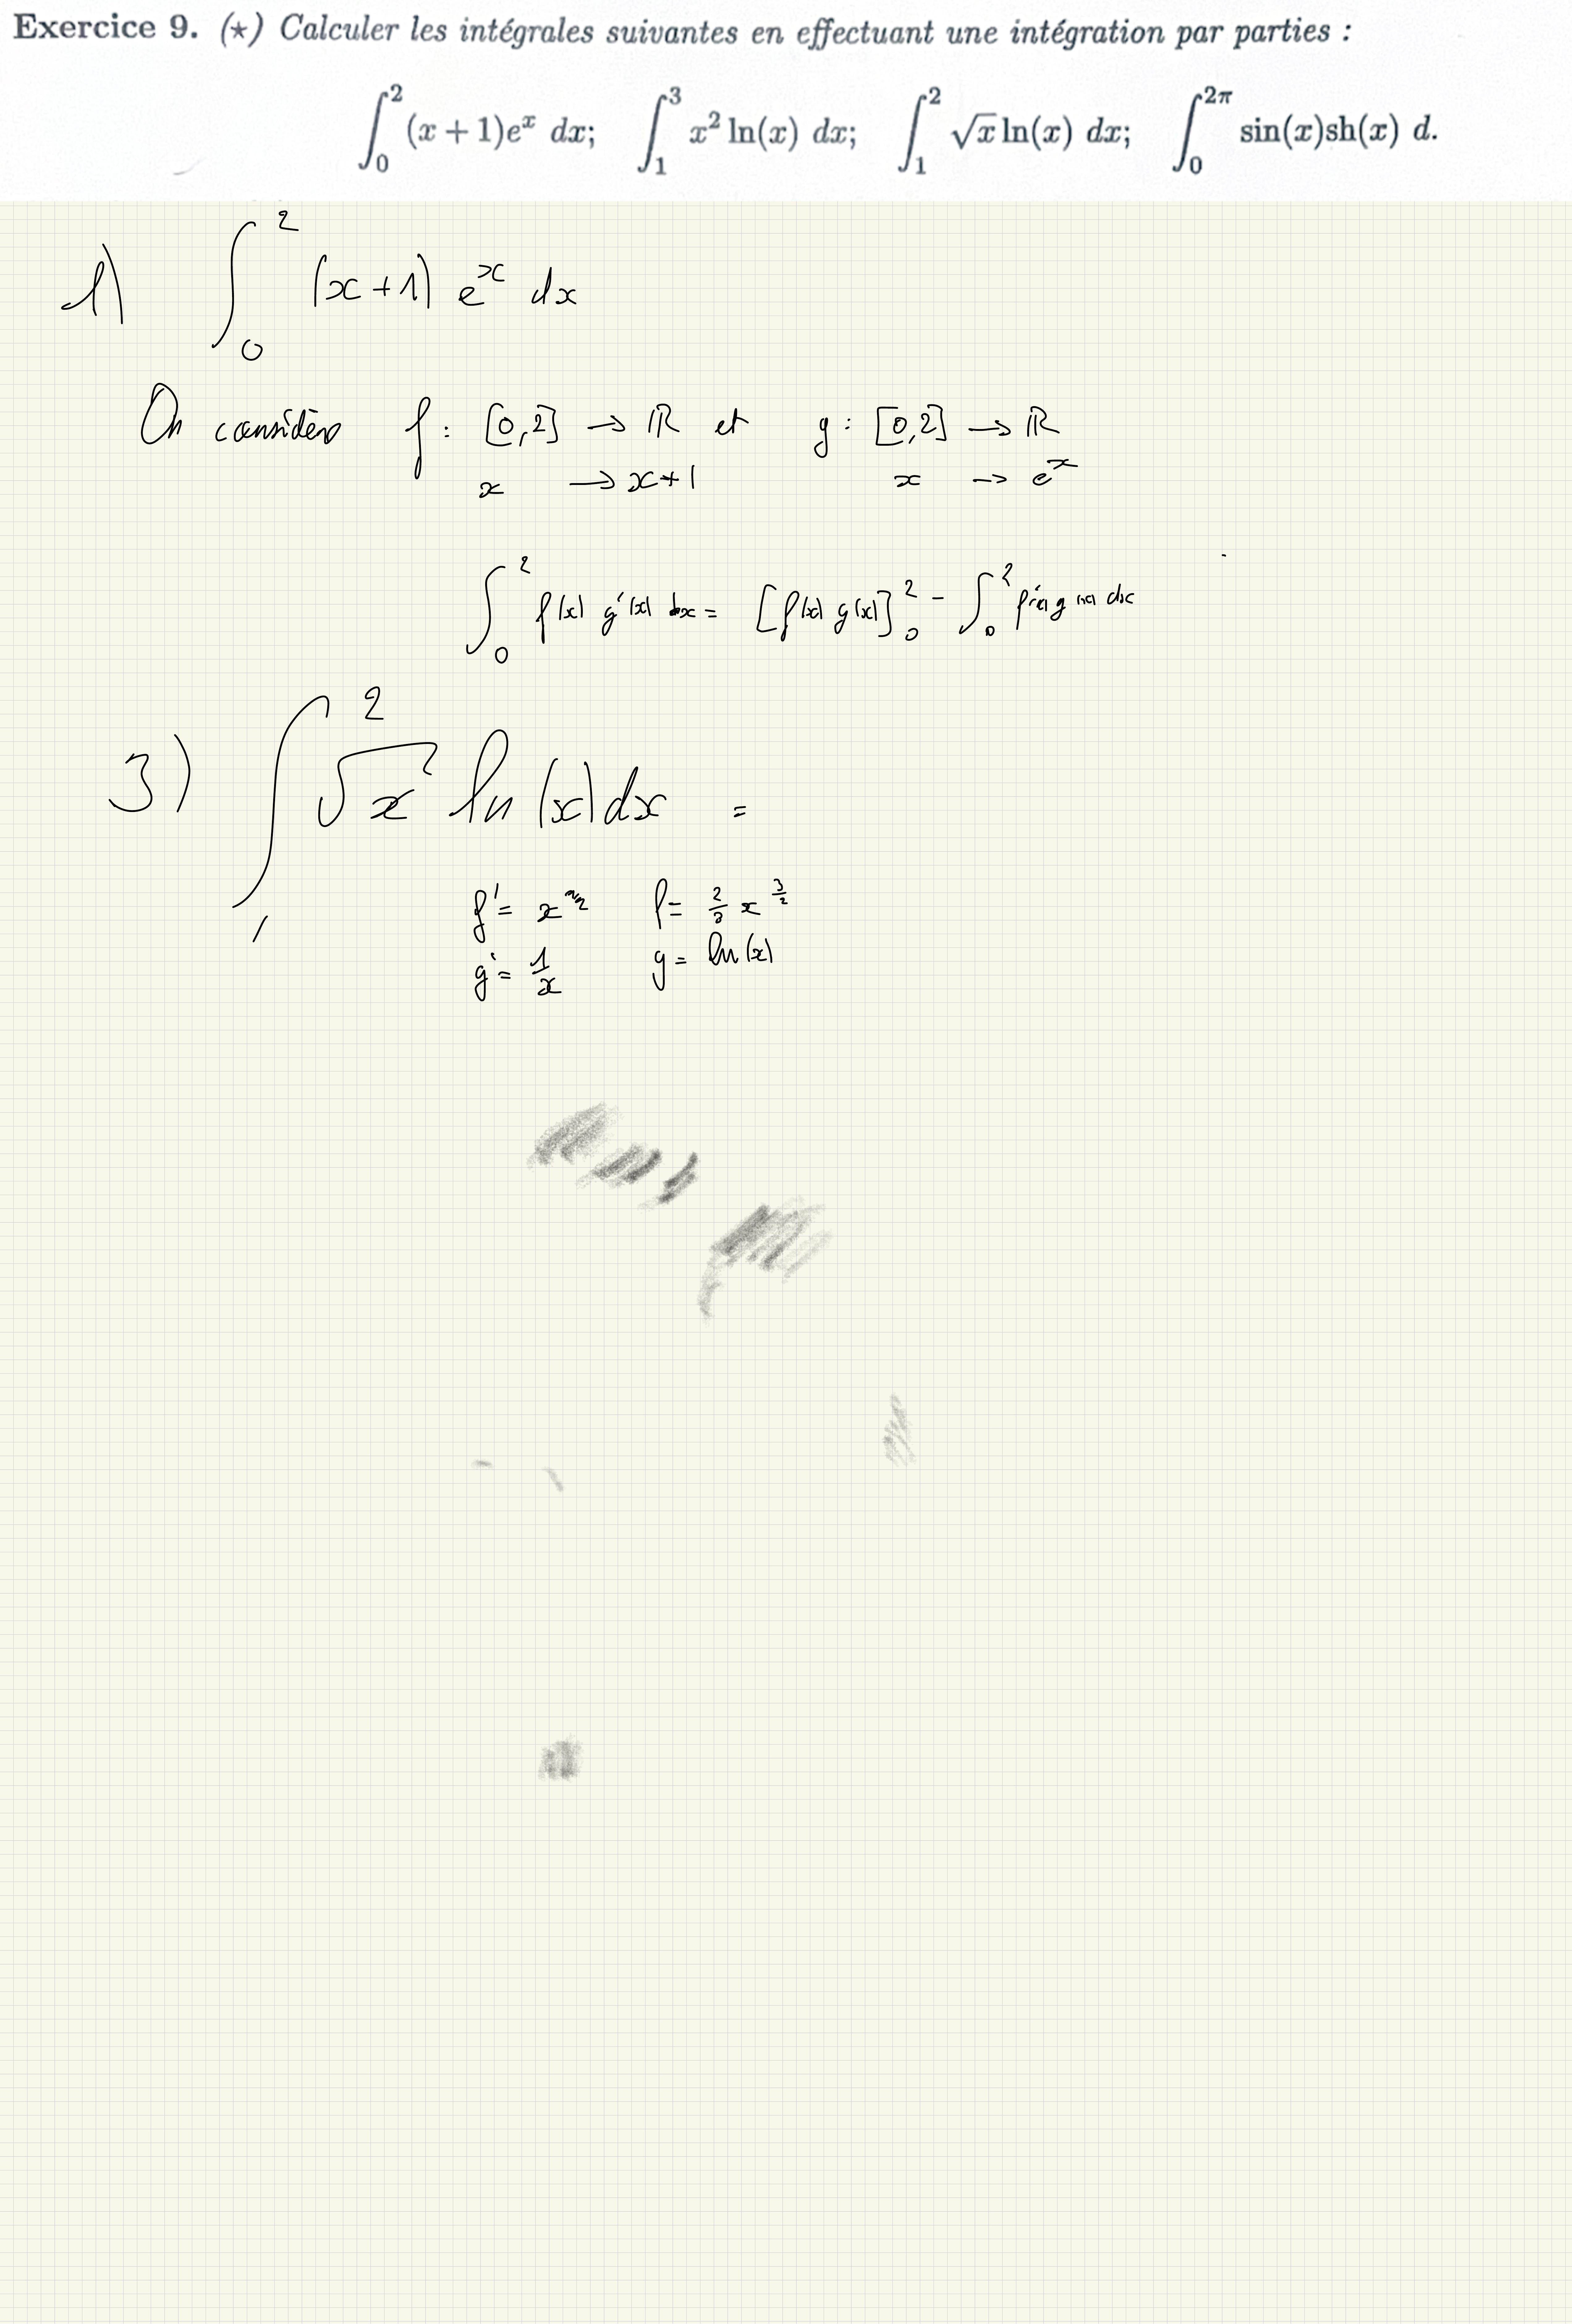 Exercice 9. (⋆) Calculer les intégrales suivantes en effectuant une intégration par parties :
∫₀² (x + 1)eˣ dx; ∫₁³ x² ln(x) dx; ∫₁² √x ln(x) dx; ∫₀^{2π} sin(x)sh(x) d.
1) ∫₀² (x+1) eˣ dx
On considère f : [0,2] → ℝ et g : [0,2] → ℝ
x → x+1 x → eˣ
∫₀² f(x) g'(x) dx = [f(x) g(x)]₀² - ∫₀² f'(x) g(x) dx
3) ∫₁² √x ln(x) dx =
f' = f = x^{3/2}
g' = 1/x g = ln(x)